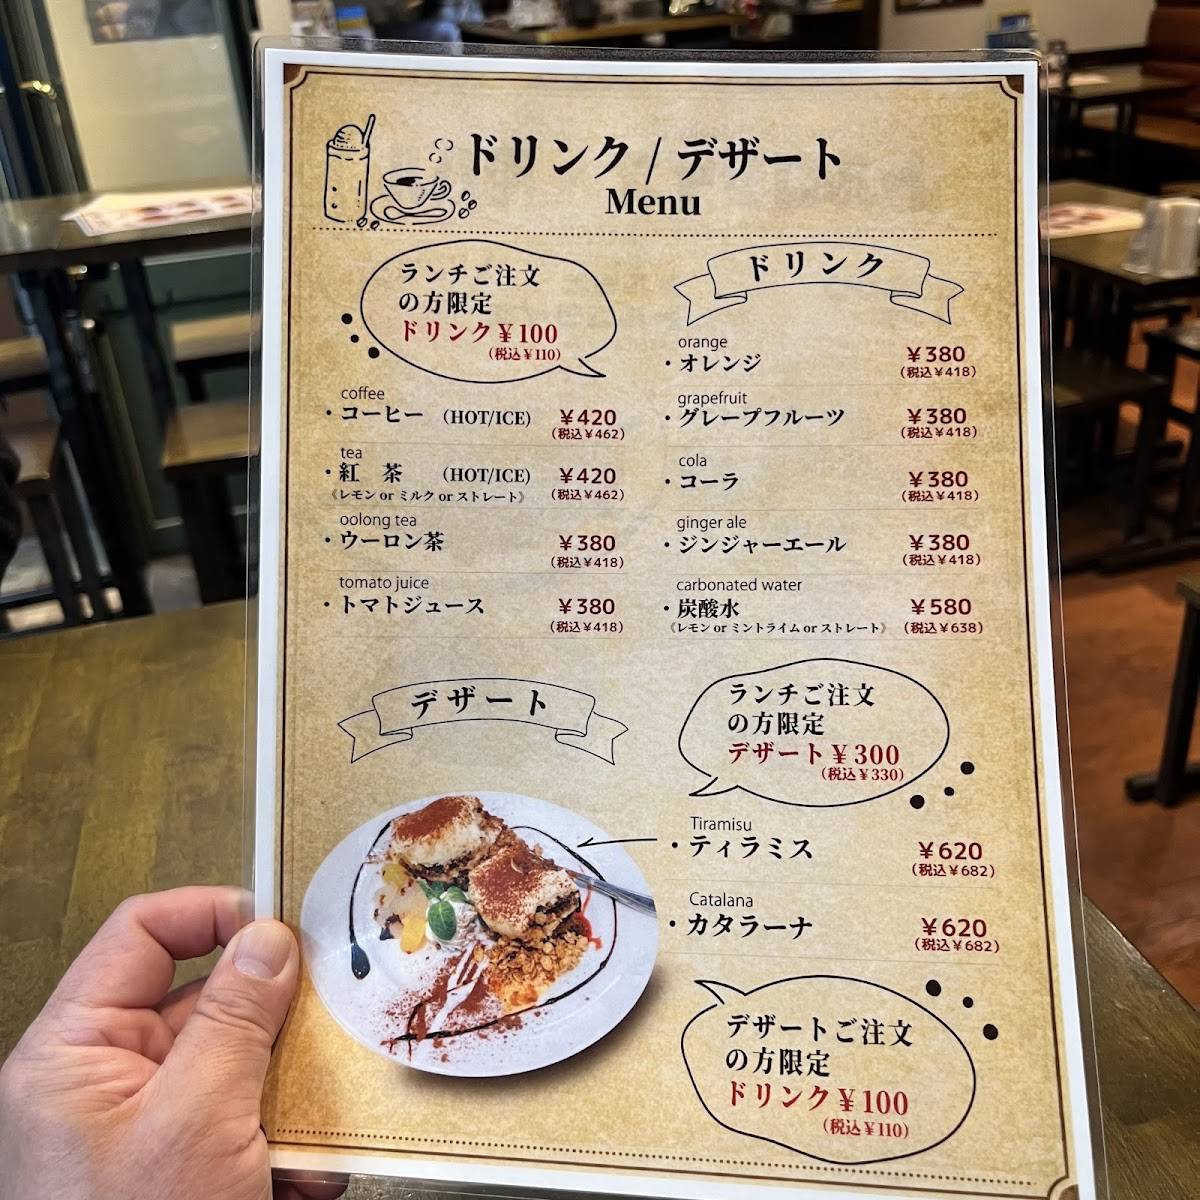 ドリンク / デザート
Menu
ランチご注文
の方限定
ドリンク￥100
(税込￥110)
coffee
・コーヒー (HOT/ICE) ￥420
(税込￥462)
tea
・紅 茶 (HOT/ICE) ￥420
《レモン or ミルク or ストレート》 (税込￥462)
oolong tea
・ウーロン茶 ￥380
(税込￥418)
tomato juice
・トマトジュース ￥380
(税込￥418)
ドリンク
orange
・オレンジ ￥380
(税込￥418)
grapefruit
・グレープフルーツ ￥380
(税込￥418)
cola
・コーラ ￥380
(税込￥418)
ginger ale
・ジンジャーエール ￥380
(税込￥418)
carbonated water
・炭酸水 ￥580
《レモン or ミントライム or ストレート》 (税込￥638)
デザート
ランチご注文
の方限定
デザート￥300
(税込￥330)
Tiramisu
・ティラミス ￥620
(税込￥682)
Catalana
・カタラーナ ￥620
(税込￥682)
デザートご注文
の方限定
ドリンク￥100
(税込￥110)